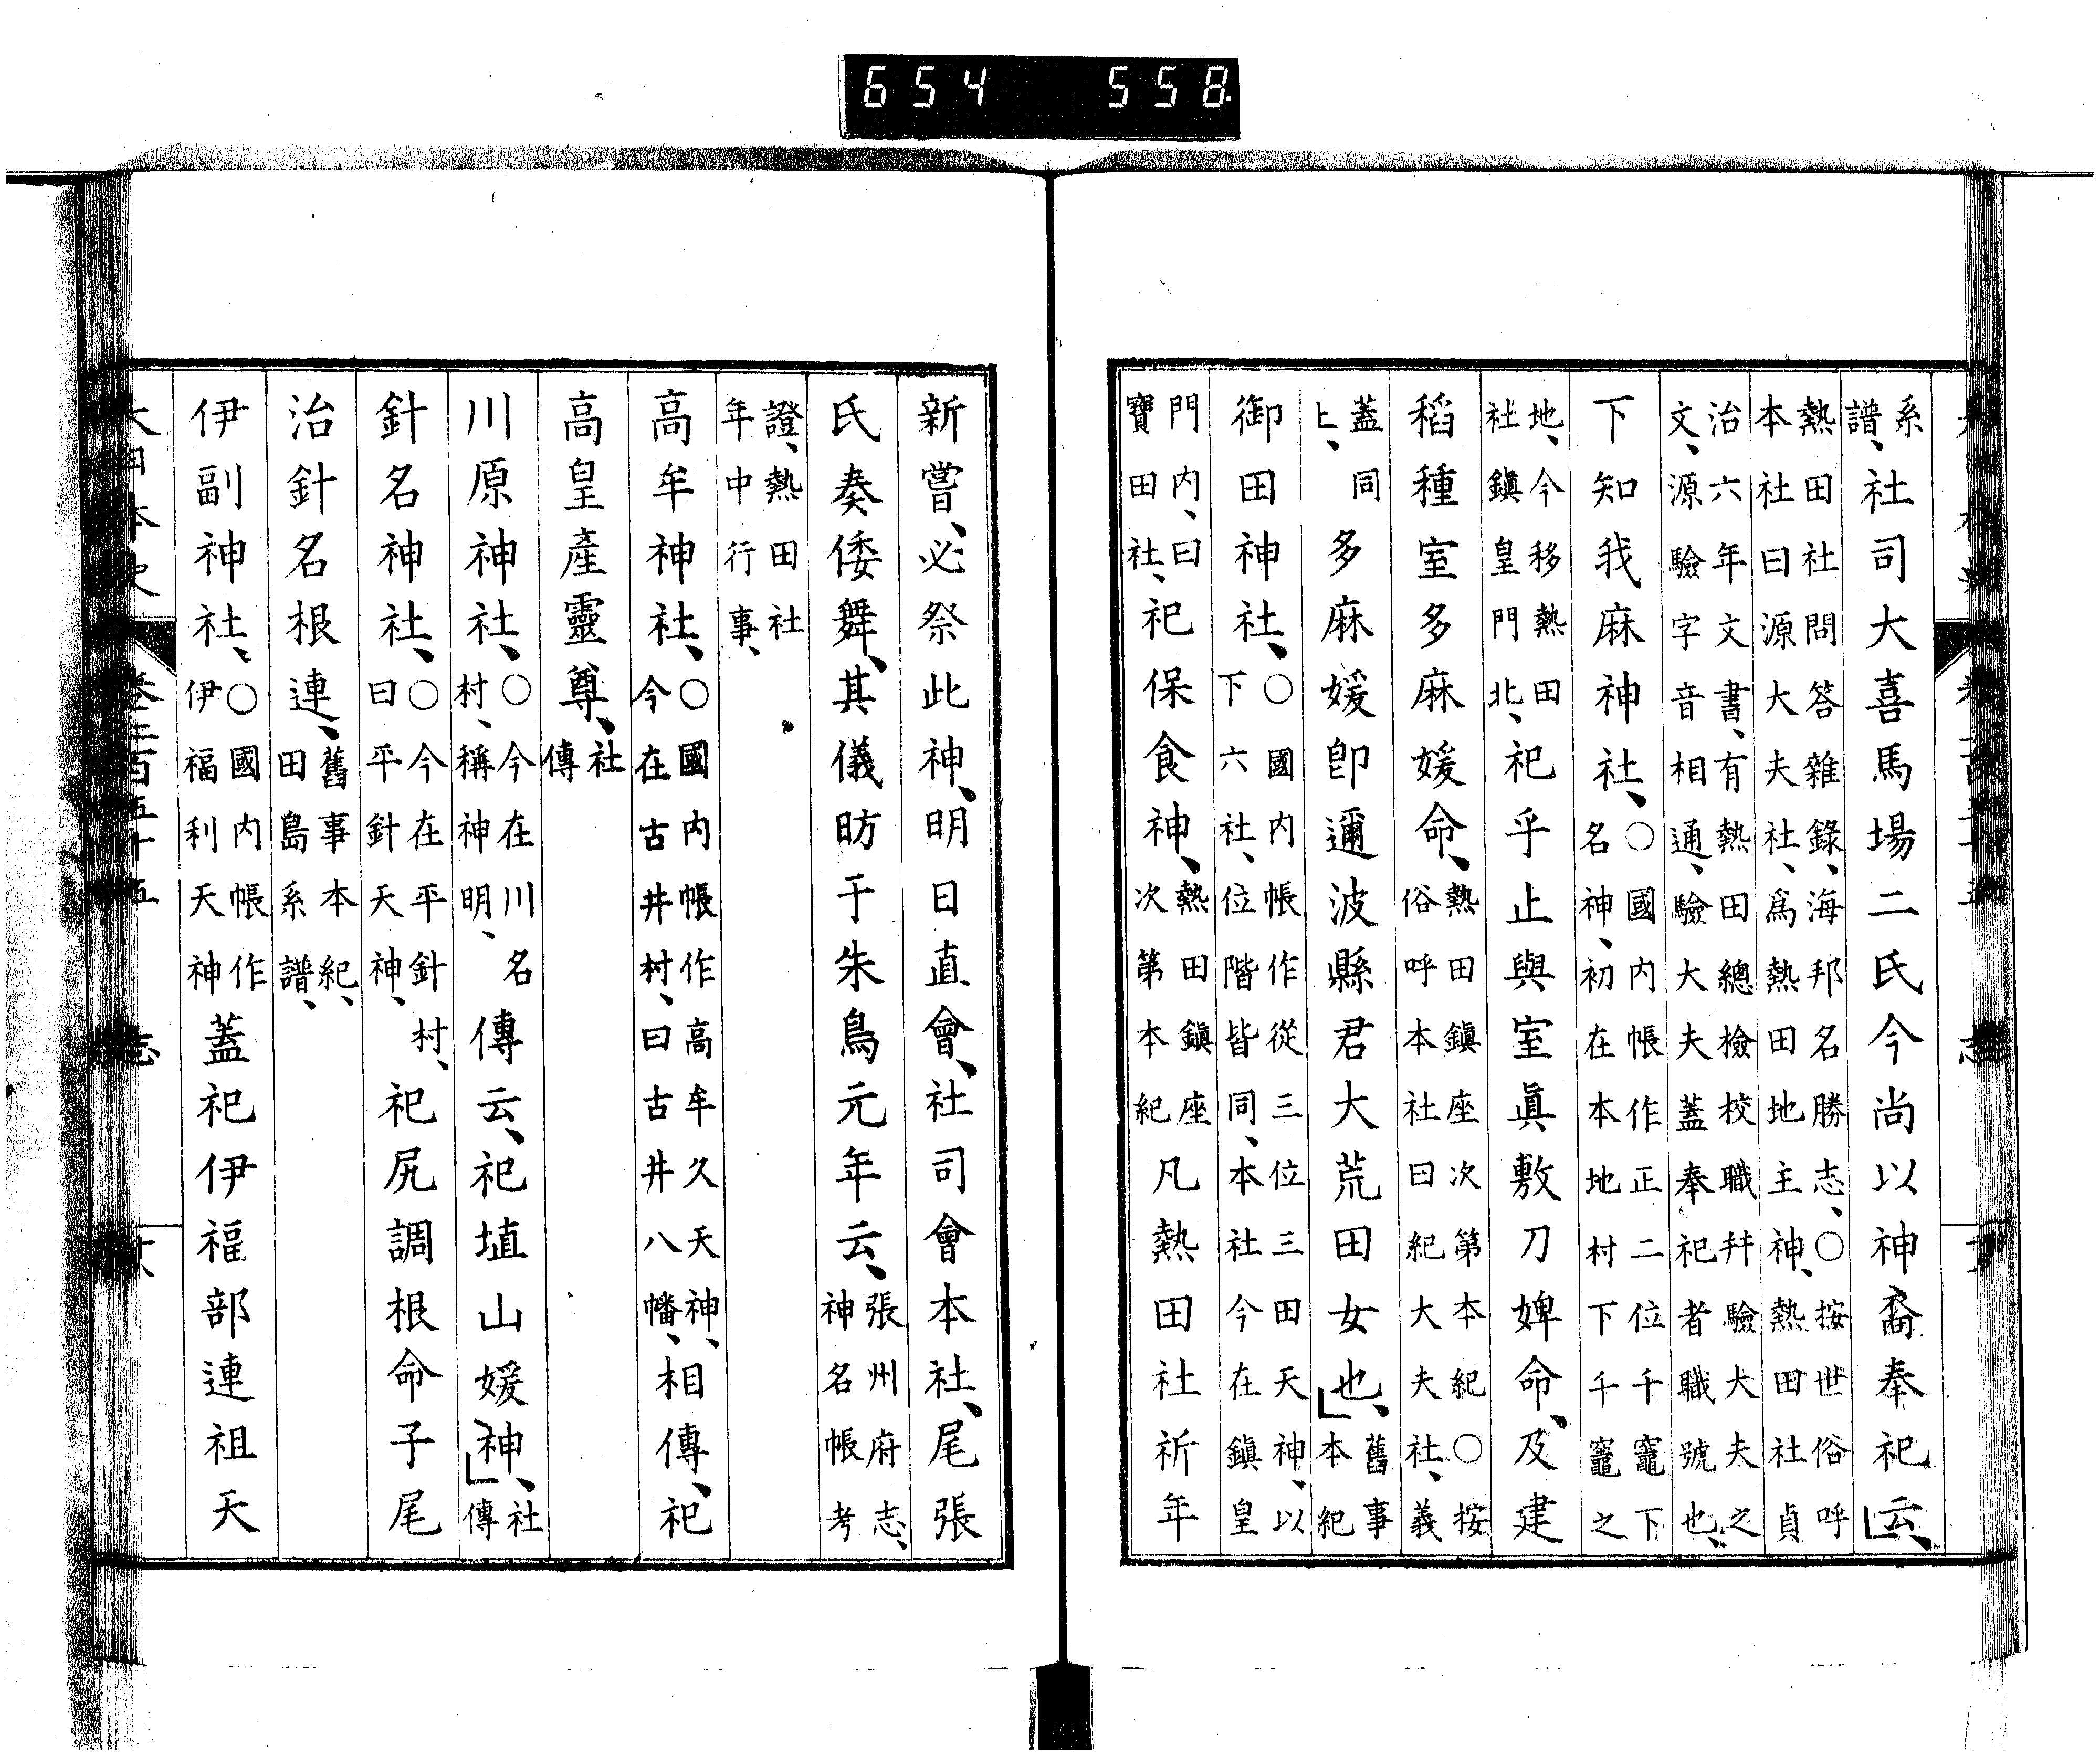 654 558
系譜、社司大喜馬場二氏今尚以神裔奉祀云、
熱田社問答雜錄、海邦名勝志、○按世俗呼
本社曰源大夫社、爲熱田地主神、熱田社貞
治六年文書、有熱田總檢校職幷驗大夫之
文、源驗字音相通、驗大夫蓋奉祀者職號也、
下知我麻神社、○國内帳作正二位千竈下名神、初在本地村下千竈之
地、今移熱田社鎭皇門北、祀乎止與室眞敷刀婢命、及建
稻種室多麻媛命、熱田鎭座次第本紀○按俗呼本社曰紀大夫社、義
蓋同上、多麻媛卽邇波縣君大荒田女也、舊事本紀
御田神社、○國内帳作從三位三田天神、以下六社、位階皆同、本社今在鎭皇
門内、曰寶田社、祀保食神、熱田鎭座次第本紀凡熱田社祈年
新嘗、必祭此神、明日直會、社司會本社、尾張
氏奏倭舞、其儀昉于朱鳥元年云、張州府志、神名帳考
證、熱田社年中行事、
高牟神社、○國内帳作高牟久天神、今在古井村、曰古井八幡、相傳、祀
高皇產靈尊、社傳
川原神社、○今在川名村、稱神明、傳云、祀埴山媛神、社傳
針名神社、○今在平針村、曰平針天神、祀尻調根命子尾
治針名根連、舊事本紀、田島系譜、
伊副神社、○國内帳作伊福利天神蓋祀伊福部連祖天
大日本史 卷二百五十五 志